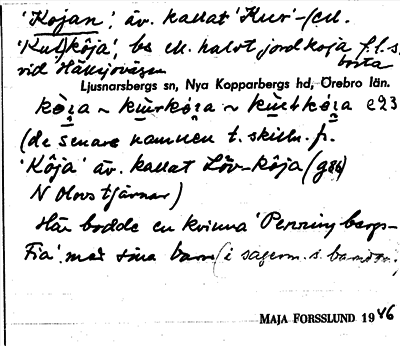 'Kojan', äv. kallat 'Kur'-(ell.
'Kult)köja', bs ell. halvt jordkoja f.l.s.
vid Hälsjövägen borta
Ljusnarsbergs sn, Nya Kopparbergs hd, Örebro län.
kòja ~ kùrkója ~ kùltkója e23
(de senare namnen t. skilln. fr.
'Köja' äv. kallat Löv-köja (g88
N Olovstjärnar)
Här bodde en kvinna 'Penningbergs-
Fia' med sina barn (i sagern. s. barndom.)
MAJA FORSSLUND 1946